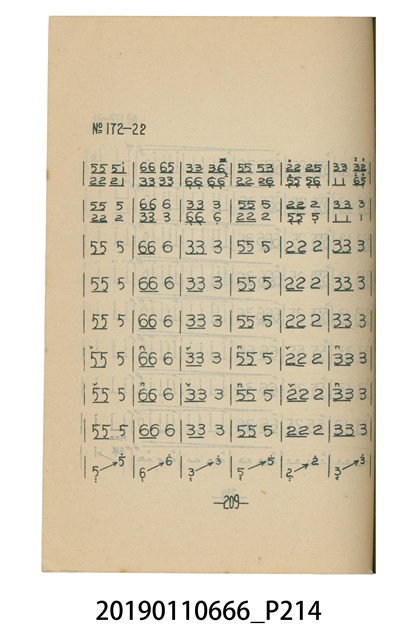 №172-22
|55 51|66 65|33 36|55 53|22 25|33 32|
|22 21|33 33|66 66|22 26|55 56|11 65|
|55 5|66 6|33 3|55 5|22 2|33 3|
|22 2|33 3|66 6|22 2|55 5|11 1|
|55 5|66 6|33 3|55 5|22 2|33 3|
|55 5|66 6|33 3|55 5|22 2|33 3|
|55 5|66 6|33 3|55 5|22 2|33 3|
|55 5|66 6|33 3|55 5|22 2|33 3|
|55 5|66 6|33 3|55 5|22 2|33 3|
|55 5|66 6|33 3|55 5|22 2|33 3|
|5↗5|6↗6|3↗3|5↗5|2↗2|3↗3|
—209—
20190110666_P214